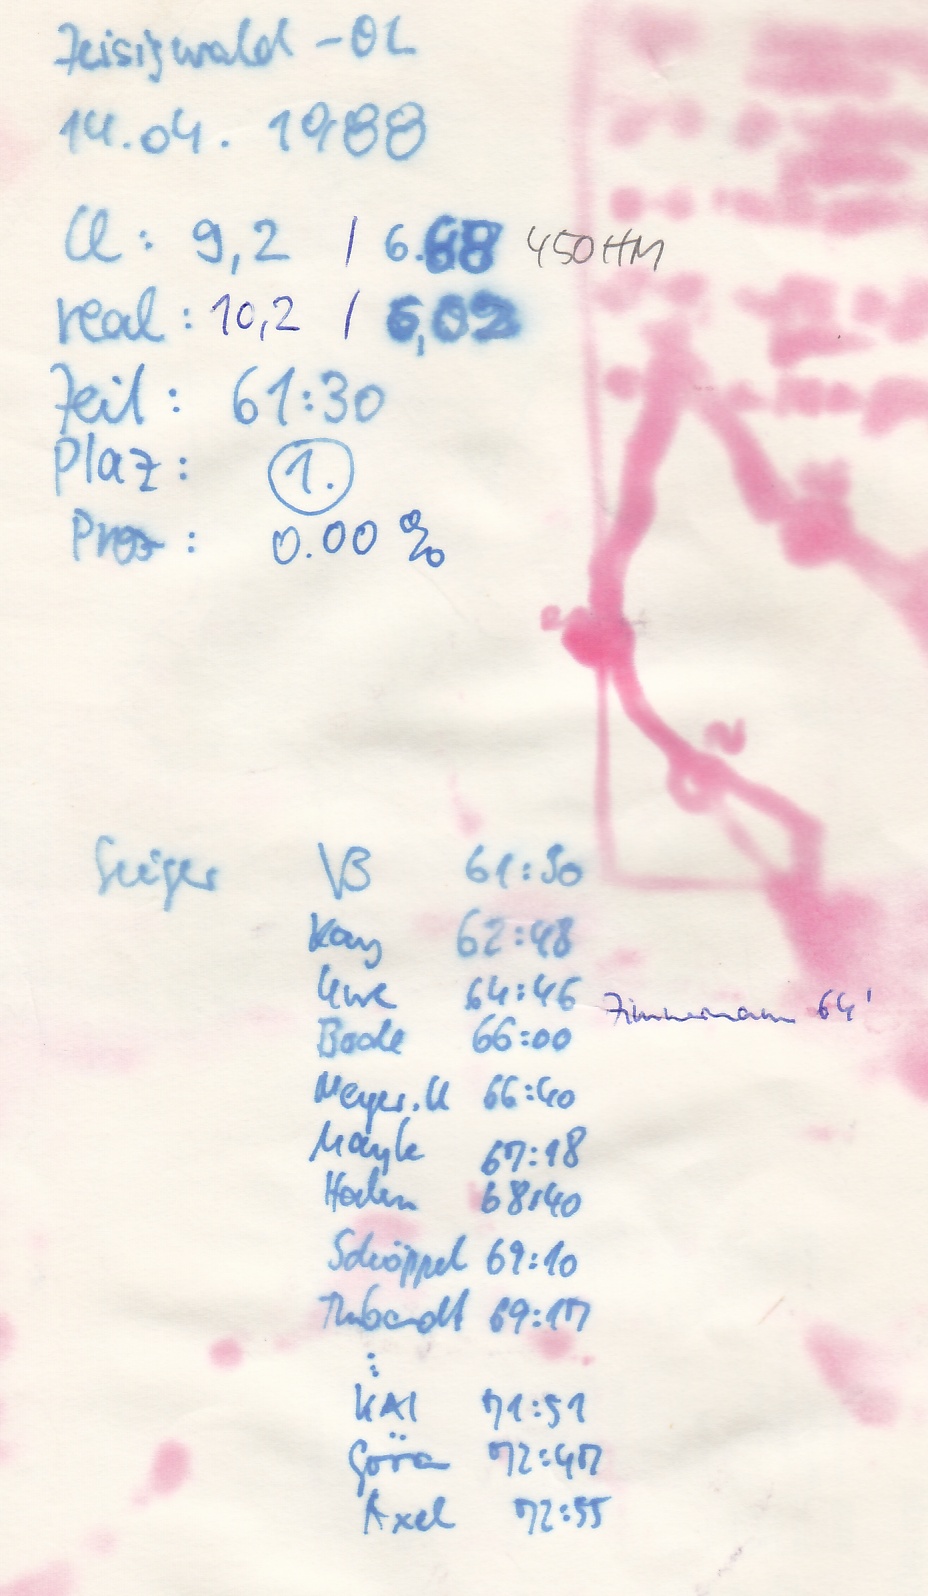 Zeisigwald-OL
14.04. 1988
Ll: 9,2 / 6.68 450HM
real: 10,2 / 6,02
Zeit: 61:30
Plaz: 1.
Proz: 0.00 %
Sieger VB 61:30
Kay 62:48
Uwe 64:46 Zimmermann 64'
Bode 66:00
Meyer.U 66:40
Mayk 67:18
68:40
Schöppel 69:10
69:17
:
KAI 71:51
Göra 72:47
Axel 72:55